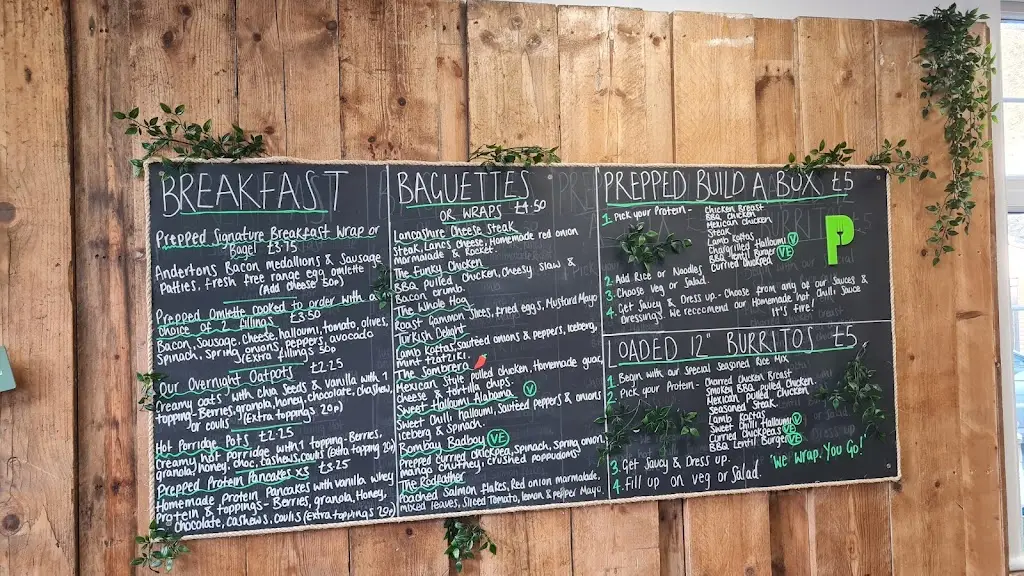 BREAKFAST
Prepped Signature Breakfast Wrap or
Bagel £3.75
Andertons Bacon medallions & Sausage
Patties, fresh free range egg omlette
(Add Cheese 50p)
Prepped Omlette cooked to order with a
choice of 2 fillings £3.50
Bacon, Sausage, Cheese, halloumi, tomato, olives,
Spinach, Spring onions, peppers, avocado
(extra fillings 50p
Our Overnight Oatpots £2.25
Creamy oats with chia Seeds & vanilla with 1
topping - Berries, granola, honey, chocolate, cashew,
or coulis (Extra toppings 20p)
Hot Porridge Pots £2.25
Creamy hot Porridge with 1 topping - Berries,
granola, honey, choc, cashews, coulis (Extra topping 20p)
Prepped Protein Pancakes x3 £3.25
Homemade Protein Pancakes with vanilla whey
Protein & toppings - Berries, granola, Honey,
Chocolate, cashews, coulis (Extra toppings 20p)
BAGUETTES
OR WRAPS £4.50
Lancashire Cheese Steak
Steak, Lancs Cheese, Homemade red onion
marmalade & Rocket.
The Funky Chicken
BBQ Pulled Chicken, Cheesy Slaw &
Bacon crumb
The Whole Hog
Roast Gammon Slices, fried eggs, Mustard Mayo
Turkish Delight
Lamb Koftas, sautéed onions & peppers, iceberg,
Mint tzatziki.
The Sombrero
Mexican Style pulled chicken, Homemade guac,
cheese & tortilla chips.
Sweet Halloumi Alabama V
Sweet Chilli Halloumi, Sautéed peppers & onions
Iceberg & Spinach.
Bombay Badboy VE
Prepped Curried chickpea, Spinach, Spring onion,
mango chutney, crushed poppudoms
The Rodfather
Poached Salmon flakes, Red onion marmalade,
mixed leaves, Sliced Tomato, lemon & pepper Mayo
PREPPED BUILD A BOX £5
1. Pick your Protein - Chicken Breast
BBQ Chicken
Mexican Chicken
Steak
Lamb Koftas
Chargrilled Halloumi V
BBQ lentil Burger VE
Curried Chickpea
P
2. Add Rice or Noodles
3. Choose Veg or Salad.
4. Get Saucy & Dress up - Choose from any of our Sauces &
Dressings! We reccomend our Homemade hot chilli Sauce
It's fire!
LOADED 12" BURRITOS £5
1. Begin with our special Seasoned Rice Mix
2. Pick your Protein - Charred Chicken Breast
Smokey BBQ pulled Chicken
Mexican pulled Chicken
Seasoned Steak
Lamb Koftas
Sweet Chilli Halloumi V
Curried Chickpeas VE
BBQ Lentil Burger VE
3. Get Saucy & Dress up.
"We Wrap. You Go!"
4. Fill up on veg or Salad